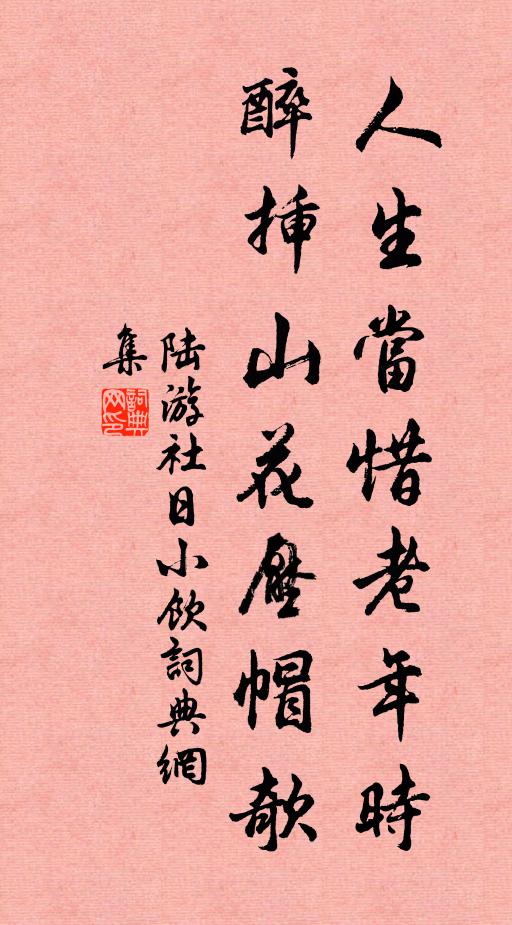 人生當惜老年時
醉挿山花壓帽欹
陆游社日小飲詞典網
集
詞典
网印